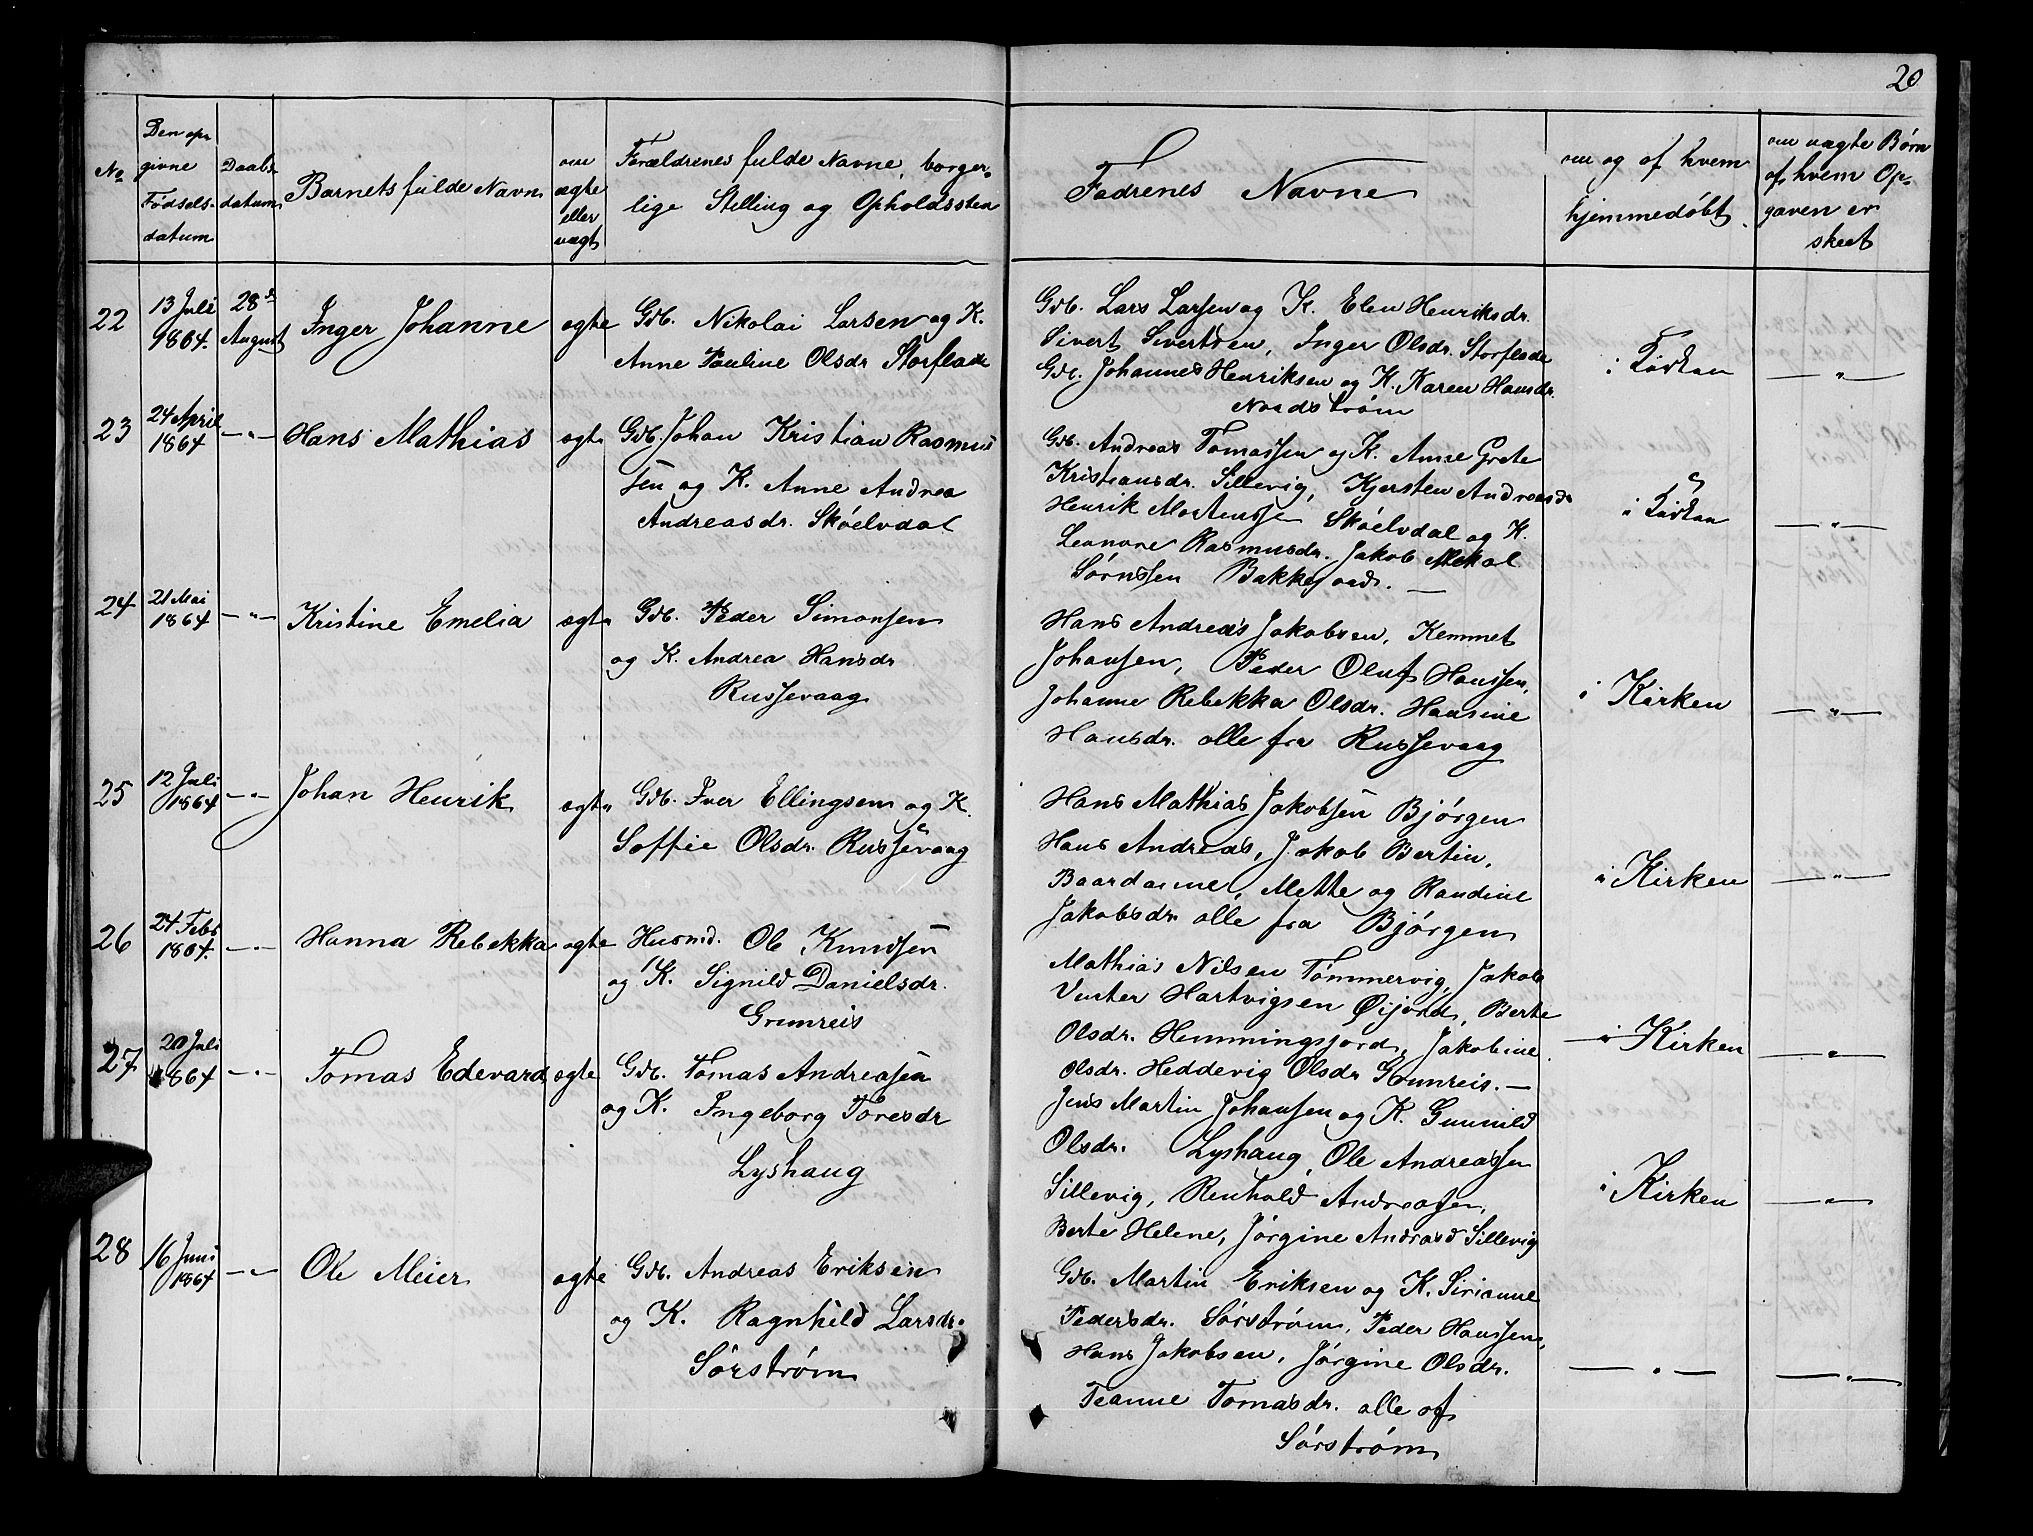 20
No
Den op-
givne
Fødsels-
datum
Daabs-
datum
Barnets fulde Navn
om
ægte
eller
uægt
Forældrenes fulde Navne, borger-
lige Stilling og Opholdssted
Fadrenes Navne
om og af hvem
hjemmedøbt
om uægte Børn
af hvem Op-
gaven er
skeet
22
13 Juli
1864.
28de
August
Inger Johanne
ægte
Gdb. Nikolai Larsen og K.
Anne Pauline Olsdr Storflade
Gdb. Lars Larsen og K. Elen Henriksdr.
Sivert Sivertsen, Inger Olsdr. Storflade
Gdb. Johannes Henriksen og K. Karen Hansdr.
Nordstrøm
i Kirken
— " —
23
24 April
1864
— " —
Hans Mathias
ægte
Gdb. Johan Kristian Rasmus
sen og K. Anne Andrea
Andreasdr. Skóelvdal
Gdb. Andreas Tomassen og K. Anne Grete
Kristiansdr. Sillevig, Kjersten Andreasdr
Henrik Mortensen Skóelvdal og K.
Leonore Rasmusdr. Jakob Mekal
Sórnssen Bakkejord. —
i Kirken
— " —
24
21 Mai
1864
— " —
Kristine Emelia
ægte
Gdb. Peder Simonsen
og K. Andrea Hansdr
Russevaag
Hans Andreas Jakobsen, Kemmet
Johansen, Peder Oluf Hanssen,
Johanne Rebekka Olsdr. Hansine
Hansdr. alle fra Russevaag
i Kirken
— " —
25
12 Juli
1864
— " —
Johan Henrik
ægte
Gdb. Iver Ellingsen og K.
Soffie Olsdr. Russevaag
Hans Mathias Jakobsen Bjórgen
Hans Andreas, Jakob Bertin,
Baardanne, Mette og Randine
Jakobsdr alle fra Bjórgen
i Kirken
— " —
26
24 Febr
1864.
— " —
Hanna Rebekka
ægte
Husmd. Ole Knudsen
og K. Signild Danielsdr.
Grunreis
Mathias Nilsen Tómmervig, Jakob
Venter Hartvigsen Øijord, Berte
Olsdr. Hemmingsjord, Jakobine
Olsdr. Heddevig Olsdr Grunreis. —
i Kirken
— " —
27
20 Juli
1864
— " —
Tomas Edevard
ægte
Gdb. Tomas Andreasen
og K. Ingeborg Toresdr
Lyshaug
Jens Martin Johansen og K. Gunnild
Olsdr. Lyshaug, Ole Andreassen
Sillevig, Renhold Andreasen,
Berte Helene, Jórgine Andrasd Sillevig
i Kirken
— " —
28
16 Juni
1864
— " —
Ole Meier
ægte
Gdb. Andreas Eriksen
og K. Ragnhild Larsdr.
Sórstróm
Gdb. Martin Eriksen og K. Sirianne
Pedersdr. Sórstróm, Peder Hanssen,
Hans Jakobsen, Jórgine Olsdr.
Peanne Tomasdr. alle af
Sórstróm
— " —
— " —